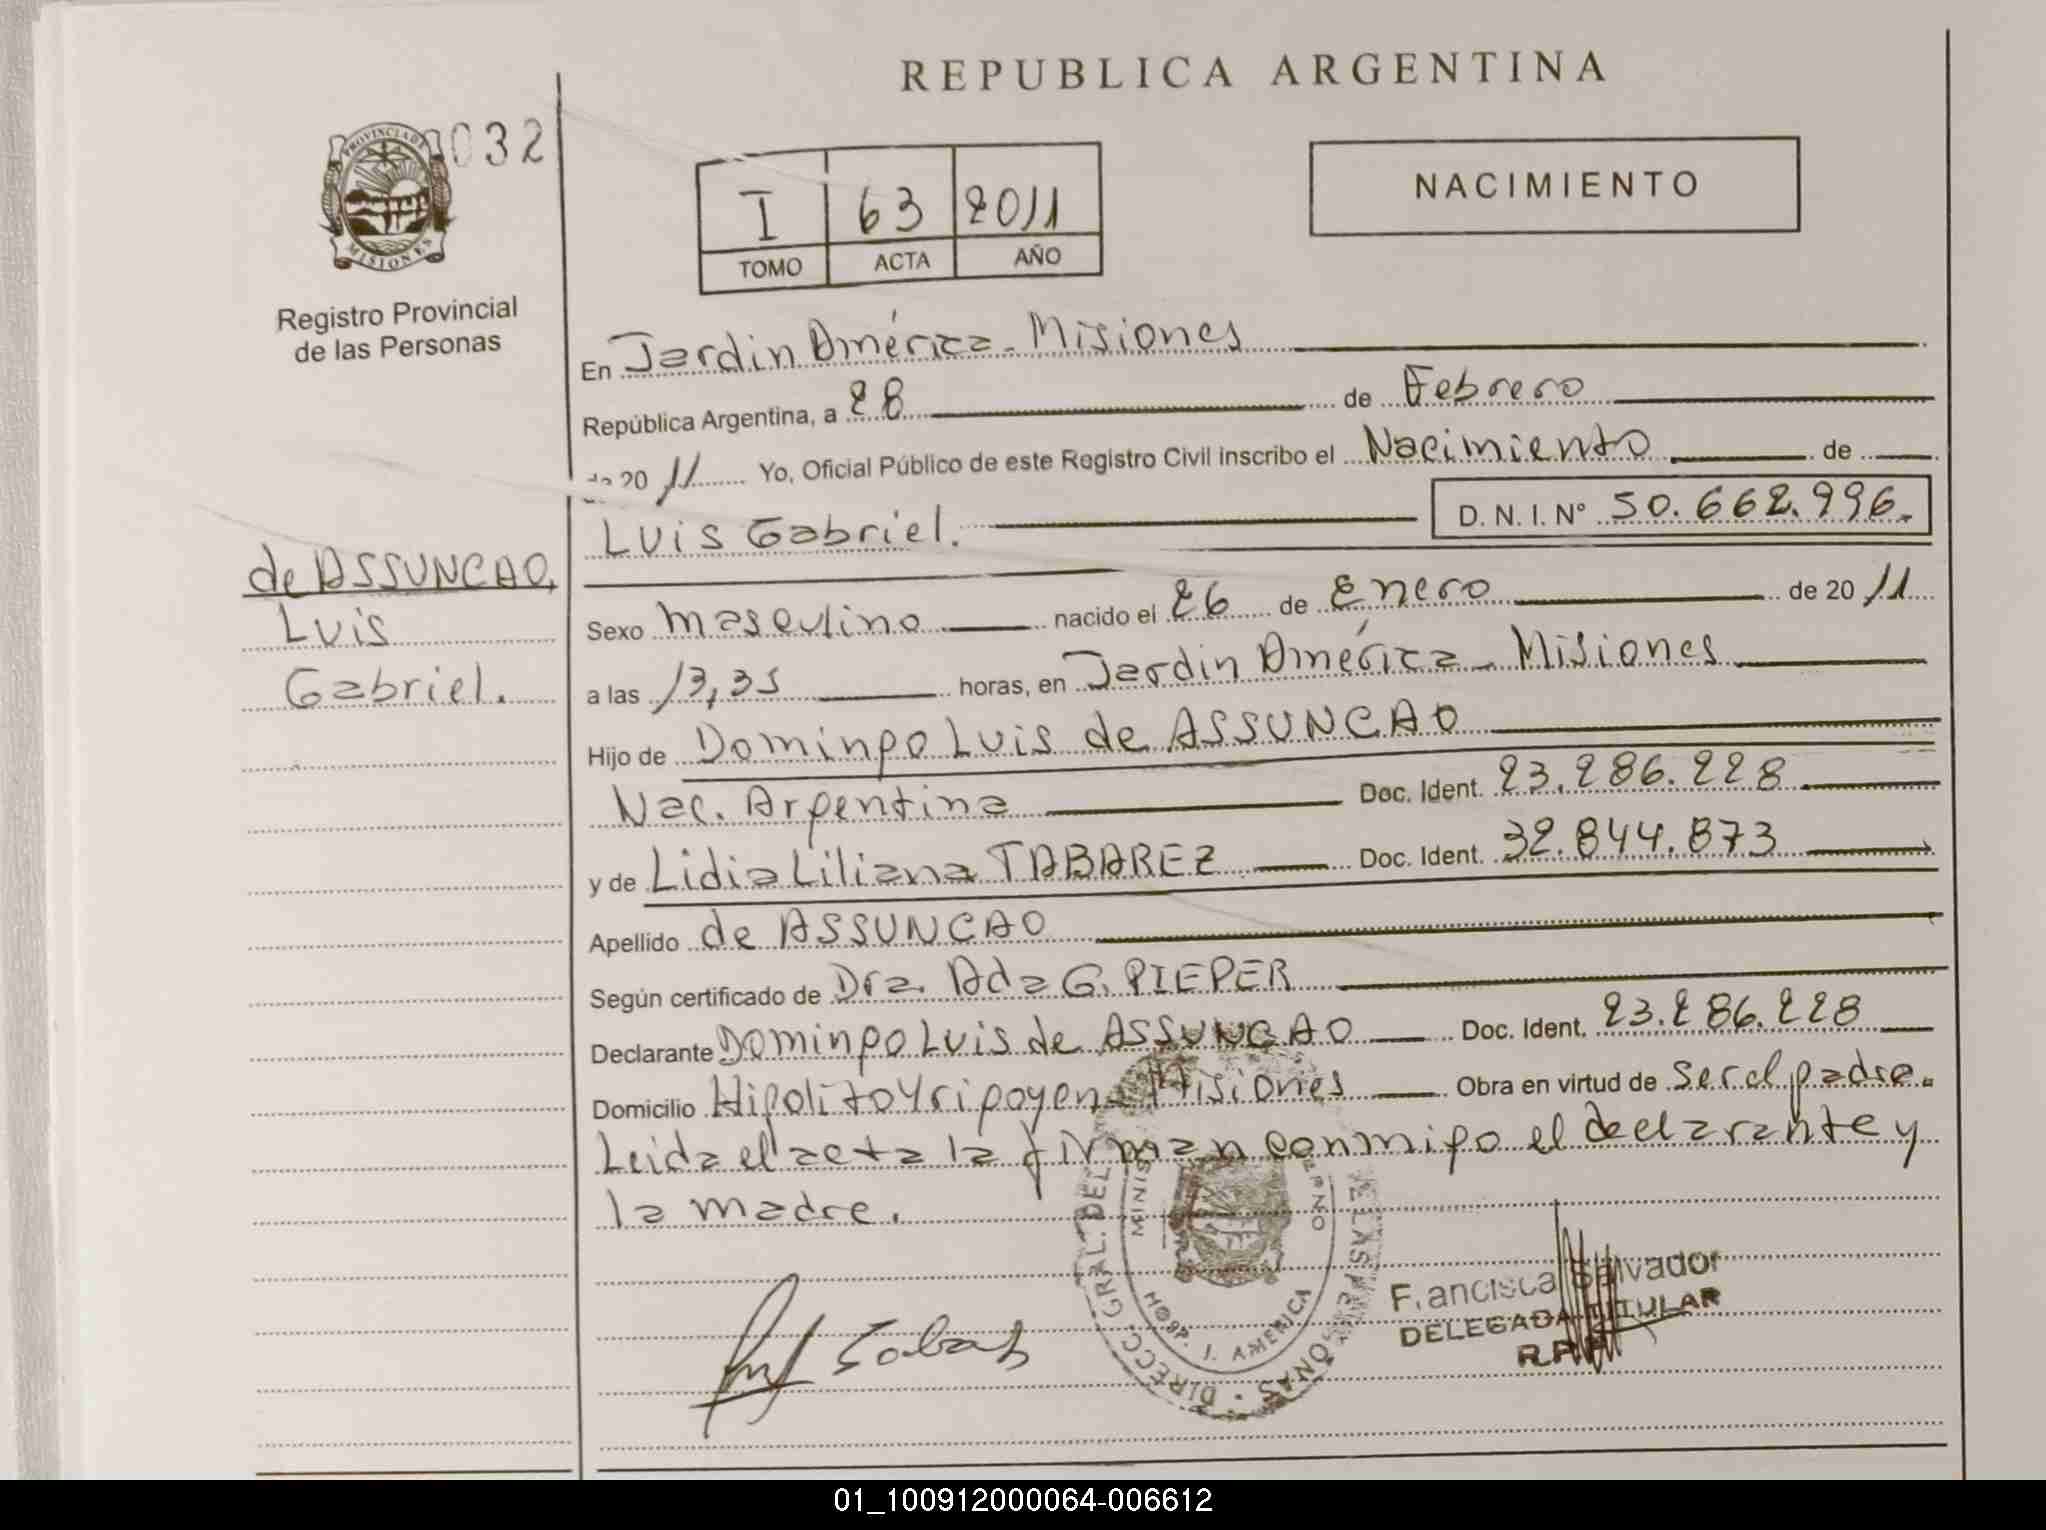 REPUBLICA ARGENTINA
032
PROVINCIA DE MISIONES
Registro Provincial
de las Personas
I 63 2011
TOMO ACTA AÑO
NACIMIENTO
En Jardin América - Misiones
República Argentina, a 28 de Febrero
de 20 11 Yo, Oficial Público de este Registro Civil inscribo el Nacimiento de
Luis Gabriel. D. N. I. Nº 50.662.996.
de ASSUNCAO,
Luis
Gabriel.
Sexo masculino nacido el 26 de Enero de 20 11
a las 13,35 horas, en Jardin América - Misiones
Hijo de Domingo Luis de ASSUNCAO
Nac. Argentina Doc. Ident. 23.286.228
y de Lidia Liliana TABAREZ Doc. Ident. 32.844.873
Apellido de ASSUNCAO
Según certificado de Dra. Ada G. PIEPER
Declarante Domingo Luis de ASSUNCAO Doc. Ident. 23.286.228
Domicilio Hipolito Yrigoyen - Misiones Obra en virtud de ser el padre.
Leida el acta la firman conmigo el declarante y
la madre.
DIRECC. GRAL. DEL
HOSP. J. AMERICA
Francisca Salvador
DELEGADA TITULAR
R.P.P
01_100912000064-006612